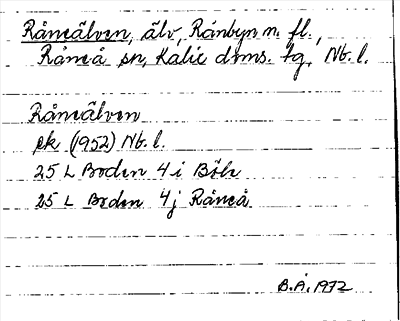 Råneälven, älv, Rånbyn m. fl.,
Råneå sn, Kalix dms. tg, Nb. l.
Råneälven
ek (1952) Nb. l.
25 L Boden 4 i Böle
25 L Boden 4 j Råneå
B.Å. 1972